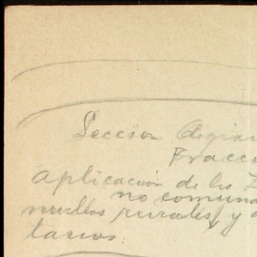 Seccion Agrar
Fracci
aplicacion de los
no comuna
nucleos rurales y
tarios.